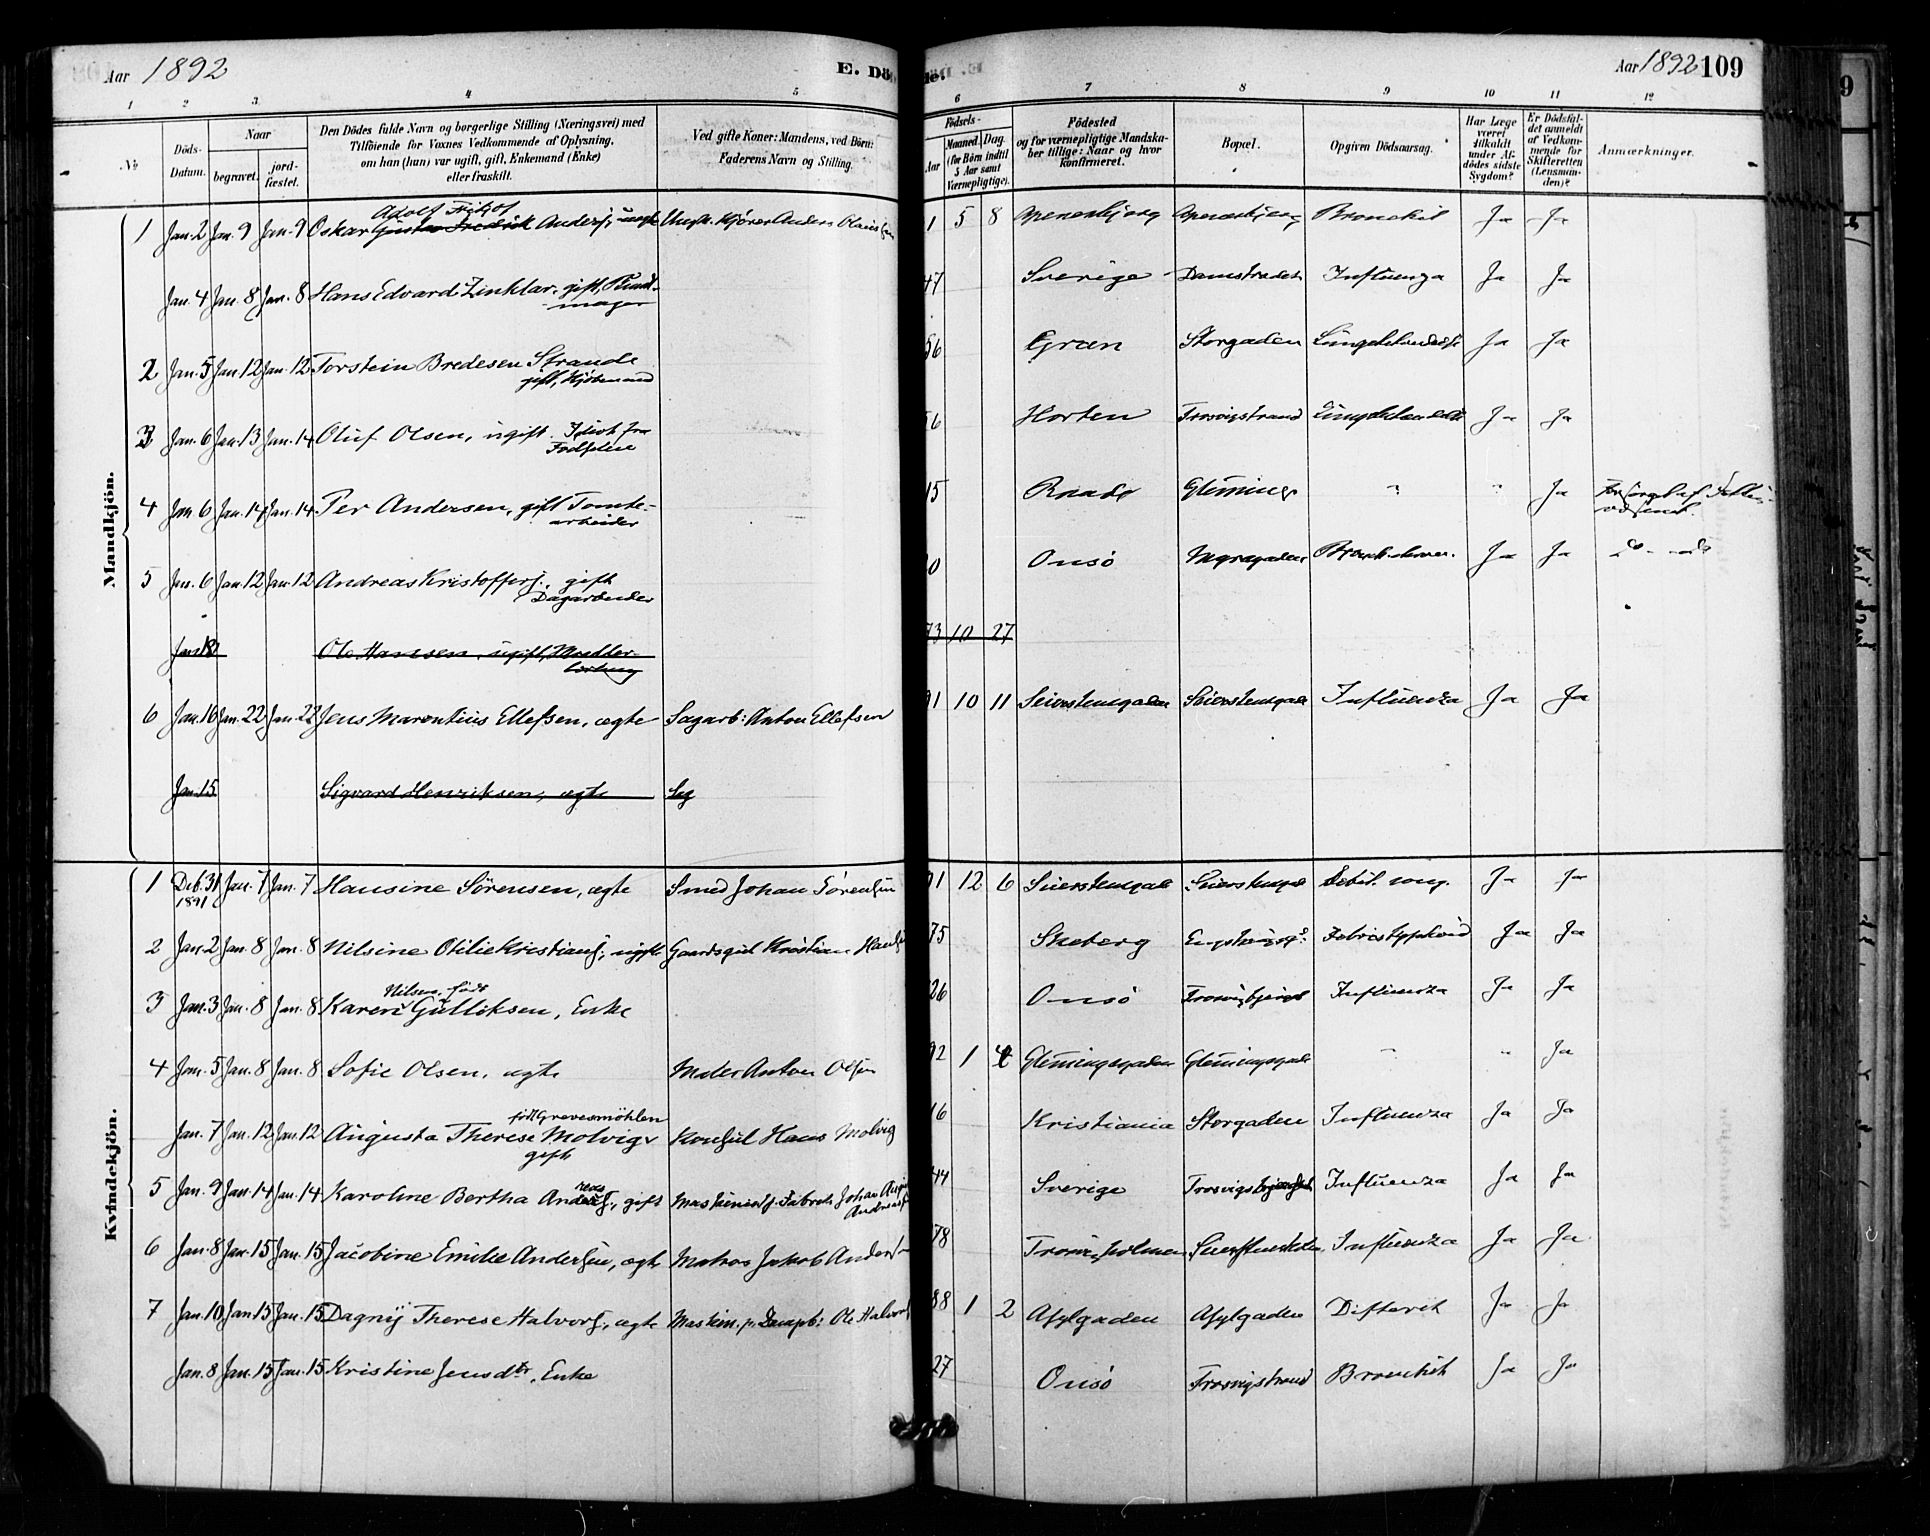 Aar 1892
E. Dö
de.
Aar 1892 109
1 2 3. 4 5 6 7 8 9 10 11 12
No
Döds-Datum.
Naar
begravet.
jord-fæstet.
Den Dödes fulde Navn og borgerlige Stilling (Næringsvei) med
Tilföiende for Voxnes Vedkommende af Oplysning,
om han (hun) var ugift, gift, Enkemand (Enke)
eller fraskilt.
Ved gifte Koner: Mandens, ved Börn:
Faderens Navn og Stilling.
Födsels-
Aar
Maaned.
Dag.
(for Börn indtil
5 Aar samt
Værnepligtige).
Födested
og for værnepligtige Mandska-
ber tillige: Naar og hvor
konfirmeret.
Bopæl.
Opgiven Dödsaarsag.
Har Læge
været
tilkaldt
under Af-
dödes sidste
Sygdom?
Er Dödsfal-
det anmeldt
af Vedkom-
mende for
Skifteretten
(Lensman-
den)?
Anmærkninger.
Mandkjön.
Adolf Fritjof
1 Jan. 2 Jan. 9 Jan. 9 Oskar Gustav Fredrik Anders., uægte Ungk. Kjører Anders Olaussen 1 5 8 Apenesbjerg Apenesbjerg Bronchit Ja Ja
Jan. 4 Jan. 8 Jan. 8 Hans Edvard Zinklar, gift, Bundt-
mager 47 Sverige Damstrædet Influenza Ja Ja
2 Jan. 5 Jan. 12 Jan. 12 Torstein Bredesen Strande
gift, Kjøbmand 56 Gran Storgaden Ja Ja
3 Jan. 6 Jan. 13 Jan. 14 Oluf Olsen, ugift. Idiot fra
Fødselen 56 Horten Trosvigstrand Ja Ja
4 Jan. 6 Jan. 14 Jan. 14 Per Andersen, gift Tomte-
arbeider 15 Glemminge " " Ja Forsørget af Fattig-
væsenet.
5 Jan. 6 Jan. 12 Jan. 12 Andreas Kristoffers., gift
Dagarbeider 0 Onsø Ja Ja do do
Jan. 18 Ole Hansen, ugift, 73 10 27
6 Jan. 16 Jan. 22 Jan. 22 Jens Marentius Ellefsen, ægte Sagarb: Anton Ellefsen 91 10 11 Seierstensgaden Seierstensgade Influenza Ja Ja
Jan. 15 Sigvard Henriksen, ægte Sag
Kvindekjön.
1 Deb. 31 Jan. 7 Jan. 7 Hansine Sørensen, ægte Smed Johan Sørensen 91 12 6 Seierstensgade Seierstensgd Debil. cong. Ja Ja
1891
2 Jan. 2 Jan. 8 Jan. 8 Nilsine Otilie Kristians., ugift Gaardsgut Kristian Hansen 75 Skeberg Febris typhoid Ja Ja
Nilsen, født
3 Jan. 3 Jan. 8 Jan. 8 Karen Gulliksen, Enke 26 Onsø Trosvigbjerget Influenza Ja Ja
4 Jan. 5 Jan. 8 Jan. 8 Sofie Olsen, ægte Maler Anton Olsen 92 1 4 Glemmingegaden Glemmingegade " " Ja
født Grevesmöhlen
Jan. 7 Jan. 12 Jan. 12 Augusta Therese Molvig, Konsul Hans Molvig 16 Kristiania Storgaden Influenza Ja Ja
gift
5 Jan. 9 Jan. 14 Jan. 14 Karoline Bertha Andreas., gift Maskinist p. Fabrik Johan Aug.
Andreas. 44 Sverige Influenza Ja Ja
6 Jan. 8 Jan. 15 Jan. 15 Jacobine Emilie Andersen, ægte Matros Jakob Anders. 78 Trosvigholmen Influenza Ja Ja
7 Jan. 10 Jan. 15 Jan. 15 Dagny Therese Halvors., ægte Maskin. p. Dampb: Ole Halvors. 88 1 2 Asylgaden Asylgaden Difterit Ja Ja
Jan. 8 Jan. 15 Jan. 15 Kristine Jensdtr, Enke 27 Onsø Trosvigstrand Bronchit Ja Ja